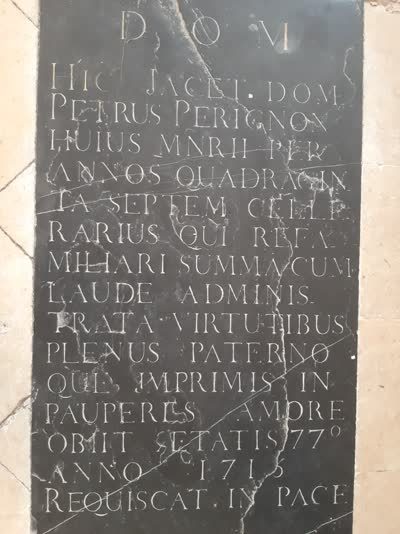 D O M
HIC JACET. DOM
PETRUS PERIGNON
HUIUS MNRII PER
ANNOS QUADRAGIN
TA SEPTEM CELLE
RARIUS QUI REFA
MILIARI SUMMA CUM
LAUDE ADMINIS
TRATA VIRTUTIBUS
PLENUS PATERNO
QUE IMPRIMIS IN
PAUPERES AMORE
OBIIT ÆTATIS 77°
ANNO 1715
REQUISCAT IN PACE